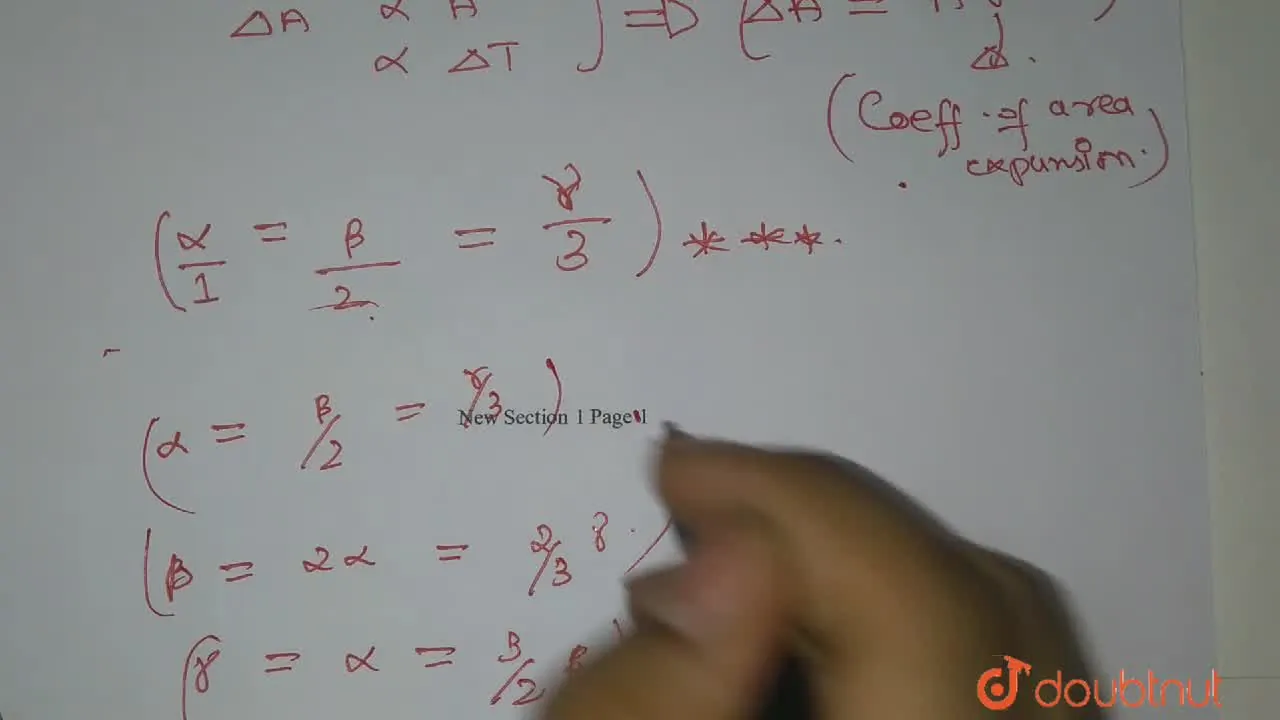 ΔA α A ] => (ΔA =
α ΔT
(Coeff. of area
expansion.)
(α/1 = β/2 = γ/3) ***.
(α = β/2 = γ/3)
New Section 1 Page 1
(β = 2α = 2/3 γ.)
(γ = α = 3/2 β
doubtnut